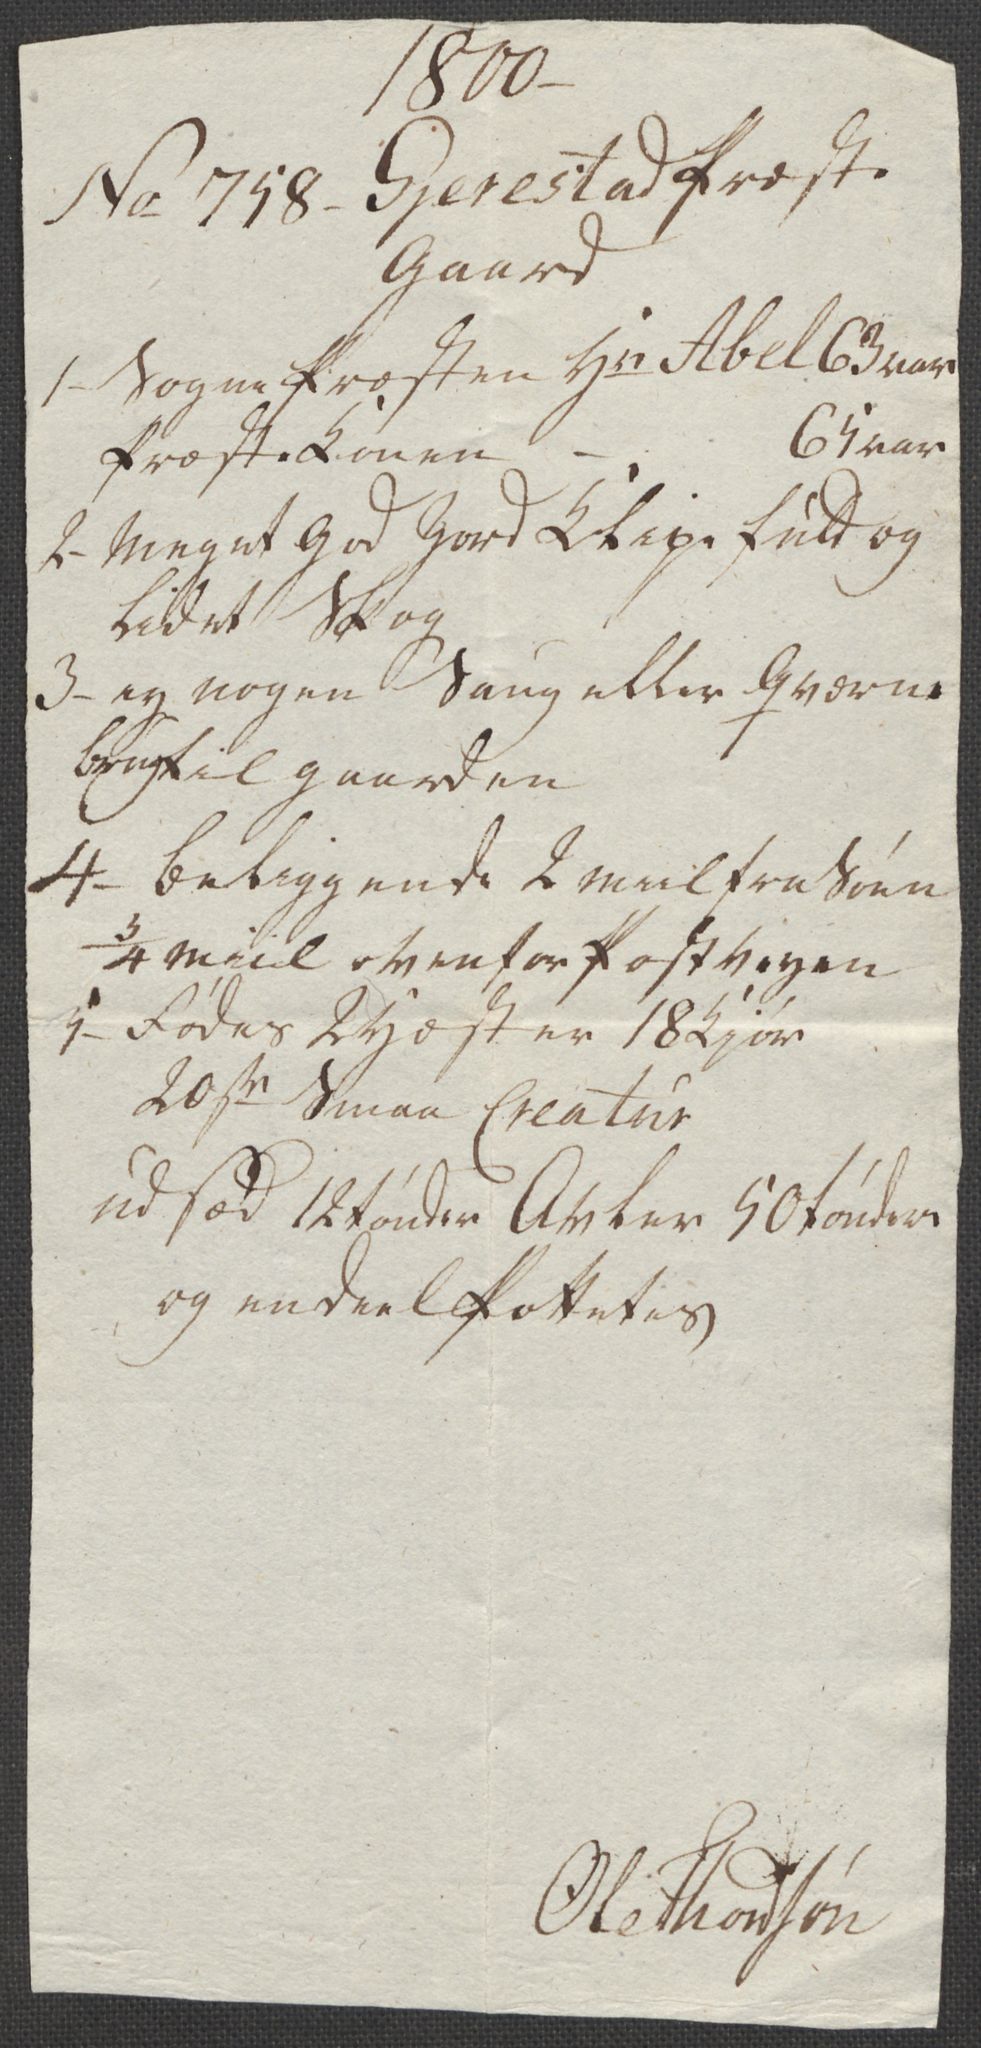 1800 -
No 758 - Gjerestad Præste
Gaard
1 - Sogne Præsten Hr Abel 63 aar
Præste Konen - 65 aar
2 - Meget God Jord Klipe fuld og
Lidet Skog
3 - ey nogen Saug eller Qværne
brug til gaarden
4 - beliggende 2 miil fra Søen
3/4 miil ovenfor Postveyen
5 - Fødes 2 Hæster 18 Kjør
20 st Smaa Creatur
ud sæd 12 tønder Avler 50 tønder
og en deel Pottetes
Ole Thordsøn